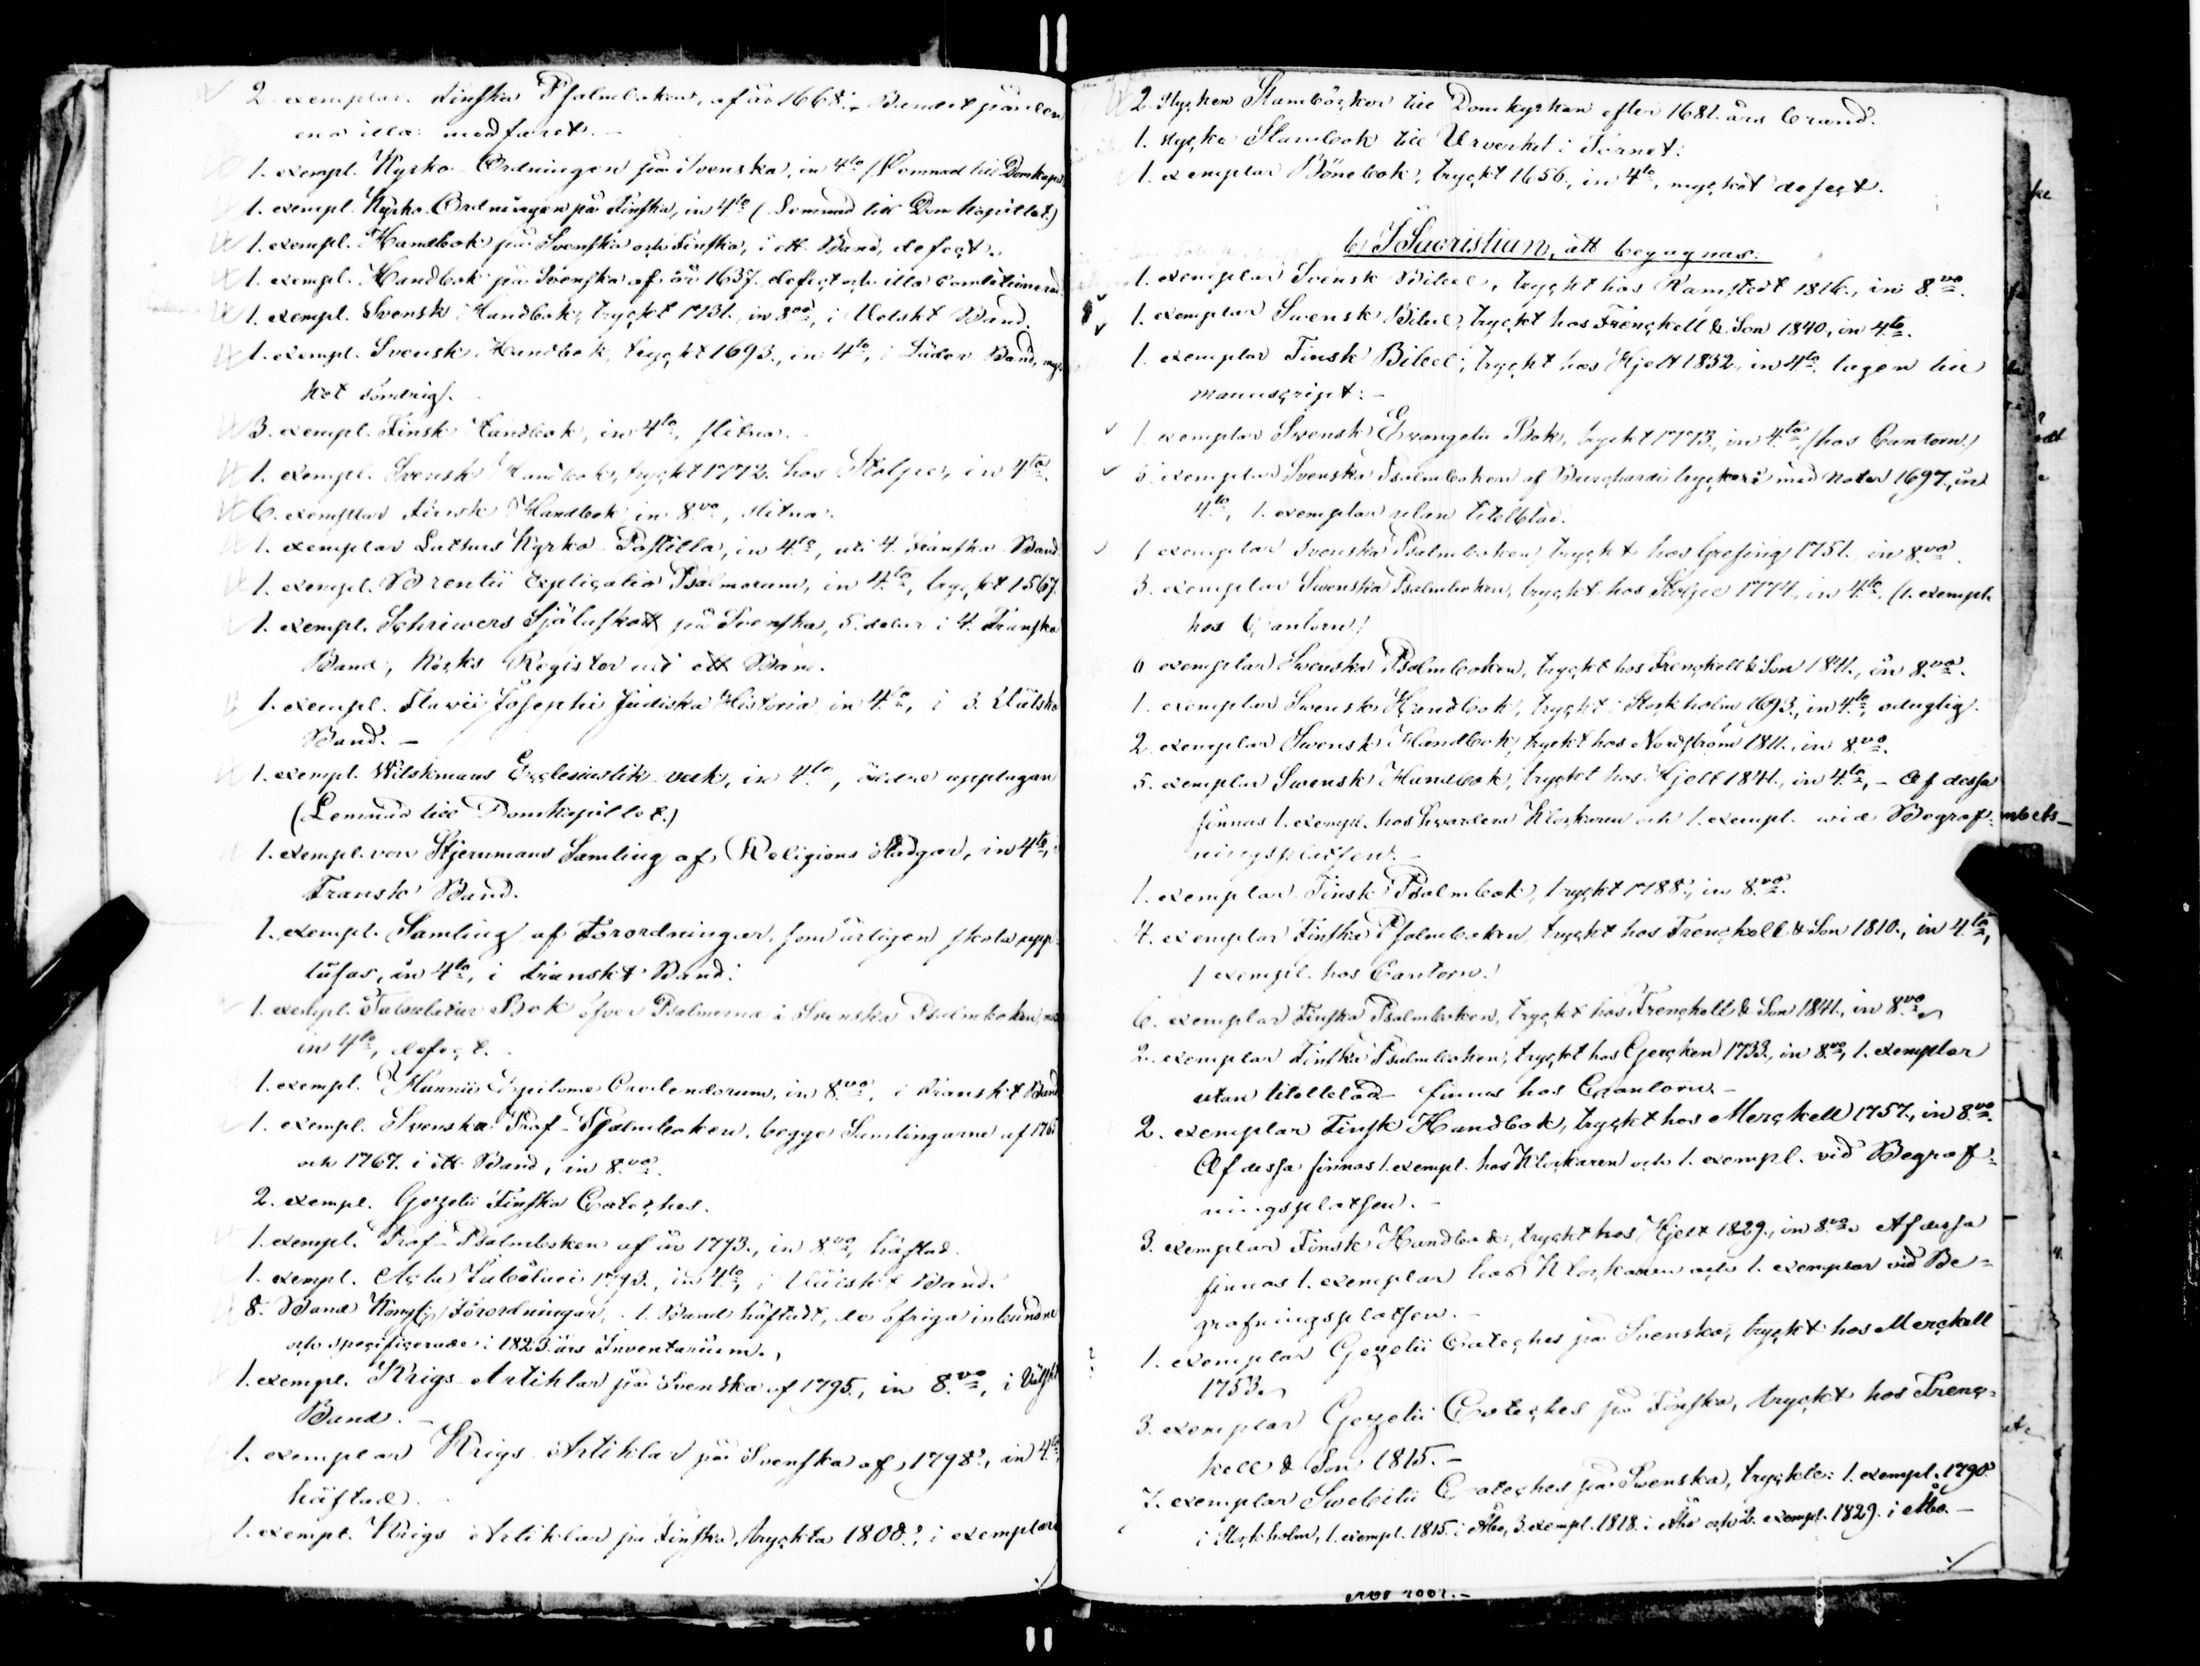 2. exemplar Finska Psalmboken, af år 1668.
ena illa medfaret. -
1. exempl. Kyrko-Ordningen på Svenska, in 4to (Lemnad till Domkapit
1. exempl. Kyrko-Ordningen på Finska, in 4to (Lemnad till Domkapitlet.)
1. exempl. Handbok på Svenska och Finska, i ett Band, defect.
1. exempl. Handbok på Svenska af år 1637. defect och illa conditionerad
1. exempl. Svensk Handbok, tryckt 1731., in 8vo, i Velskt Band.
1. exempl. Svensk Handbok, tryckt 1693., in 4to, i Läder Band, myc
ket söndrig. -
3. exempl. Finsk Handbok, in 4to, slitna.
1. exempl. Svensk Handbok, tryckt 1772. hos Stolpe, in 4to.
6. exemplar Finsk Handbok in 8vo, slitna.
1. exemplar Luthers Kyrko-Postilla, in 4to, uti 4. Franska Band.
1. exempl. Brentii Explicatio Psalmorum, in 4to, tryckt 1567.
1. exempl. Schriwers Själaskatt på Svenska, 5. delar i 4. Franska
Band, Register uti ett Band.
1. exempl. Flavii Josephi Judiska Historia in 4to, i 3. Wälska
Band. -
1. exempl. Wilskmans Ecclesiastik verk, in 4to, äldre upplagan
(Lemnad till Domkapitlet.)
1. exempl. von Stjernmans Samling af Religions Stadgar, in 4to, i
Franskt Band.
1. exempl. Samling af Förordningar, som årligen skola upp-
läsas, in 4to, i Franskt Band.
1. exempl. Tabulatur Bok öfver Psalmerna i Svenska Psalmboken,
in 4to, defect. -
1. exempl. Epitome Credendorum, in 8vo, i Franskt Band
1. exempl. Svenska Prof-Psalmboken, begge Samlingarne af 1765
och 1767. i ett Band, in 8vo.
2. exempl. Gezelii Finska Cateches.
1. exempl. Prof-Psalmboken af år 1793., in 8vo, häftad.
1. exempl. Acta Jubilaei 1793., in 4to, i Wälskt Band.
8. Band Kongl. Förordningar, 1. Band häftadt, de öfriga inbundne
och specificerade i 1823. års Inventarium.
1. exempl. Krigs-Artiklar på Svenska af 1795., in 8vo, i Välskt
Band. -
1. exemplar Krigs-Artiklar på Svenska af 1798., in 4to,
häftad. -
1. exempl. Krigs-Artiklar på Finska, tryckta 1808., i exemplare
2. Stycken Stamböcker till Domkyrkan efter 1681. års brand.
1. stycke Stambok till Urverket i Tornet.
1. exemplar Bönebok, tryckt 1656., in 4to, mycket defect.
b, I Sacristian, att begagnas.
1. exemplar Svensk Bibel, tryckt hos Ramstedt 1816., in 8vo.
1. exemplar Svensk Bibel, tryckt hos Frenckell & Son 1840, in 4to.
1. exemplar Finsk Bibel, tryckt hos Hjelt 1832., in 4to, tagen till
manuscript. -
1. exemplar Svensk Evangelii Bok, tryckt 1773., in 4to (hos Cantorn.)
3. exemplar Svenska Psalmboken af Burchardi tryckeri med Noter 1697., in
4to, 1. exemplar utan titelblad.
1 exemplar Svenska Psalmboken, tryckt hos Grefing 1751. in 8vo.
3. exemplar Svenska Psalmboken, tryckt hos Stolpe 1774., in 4to, (1. exempl.
hos Cantorn.)
6 exemplar Svenska Psalmboken, tryckt hos Frenckell & Son 1841., in 8vo.
1. exemplar Svensk Handbok, tryckt i Stockholm 1693., in 4to, oduglig.
2. exemplar Svensk Handbok, tryckt hos Nordström 1811., in 8vo.
5. exemplar Svensk Handbok, tryckt hos Hjelt 1841., in 4to, - Af dessa
finnas 1. exempl. hos Klockaren och 1. exempl. wid Begraf-
ningsplatsen. -
1. exemplar Finsk Psalmbok, tryckt 1788., in 8vo.
4. exemplar Finska Psalmboken tryckt hos Frenckell & Son 1810., in 4to,
1 exempl. hos Cantorn.)
6. exemplar Finska Psalmboken, tryckt hos Frenckell & Son 1841., in 8vo.
2. exemplar Finska Psalmboken, tryckt hos Gercken 1733., in 8vo, 1. exemplar
utan titelblad finnes hos Cantorn. -
2. exemplar Finsk Handbok, tryckt hos Merckell 1757., in 8vo.
Af dessa finnas 1. exempl. hos Klockaren och 1. exempl. vid Begraf-
ningsplatsen. -
3. exemplar Finsk Handbok, tryckt hos Hjelt 1829., in 8vo. Af dessa
finnas 1. exemplar hos Klockaren och 1. exemplar vid Be-
grafningsplatsen. -
1. exemplar Gezelii Cateches på Svenska, tryckt hos Merckell
1753.
3. exemplar Gezelii Cateches på Finska, tryckt hos Frenc-
kell & Son 1815. -
7. exemplar Swebilii Cateches på Swenska, tryckte: 1. exempl. 1790.
i Stockholm, 1. exempl. 1815. i Åbo, 3. exempl. 1818. i Åbo och 2. exempl. 1829. i Åbo. -